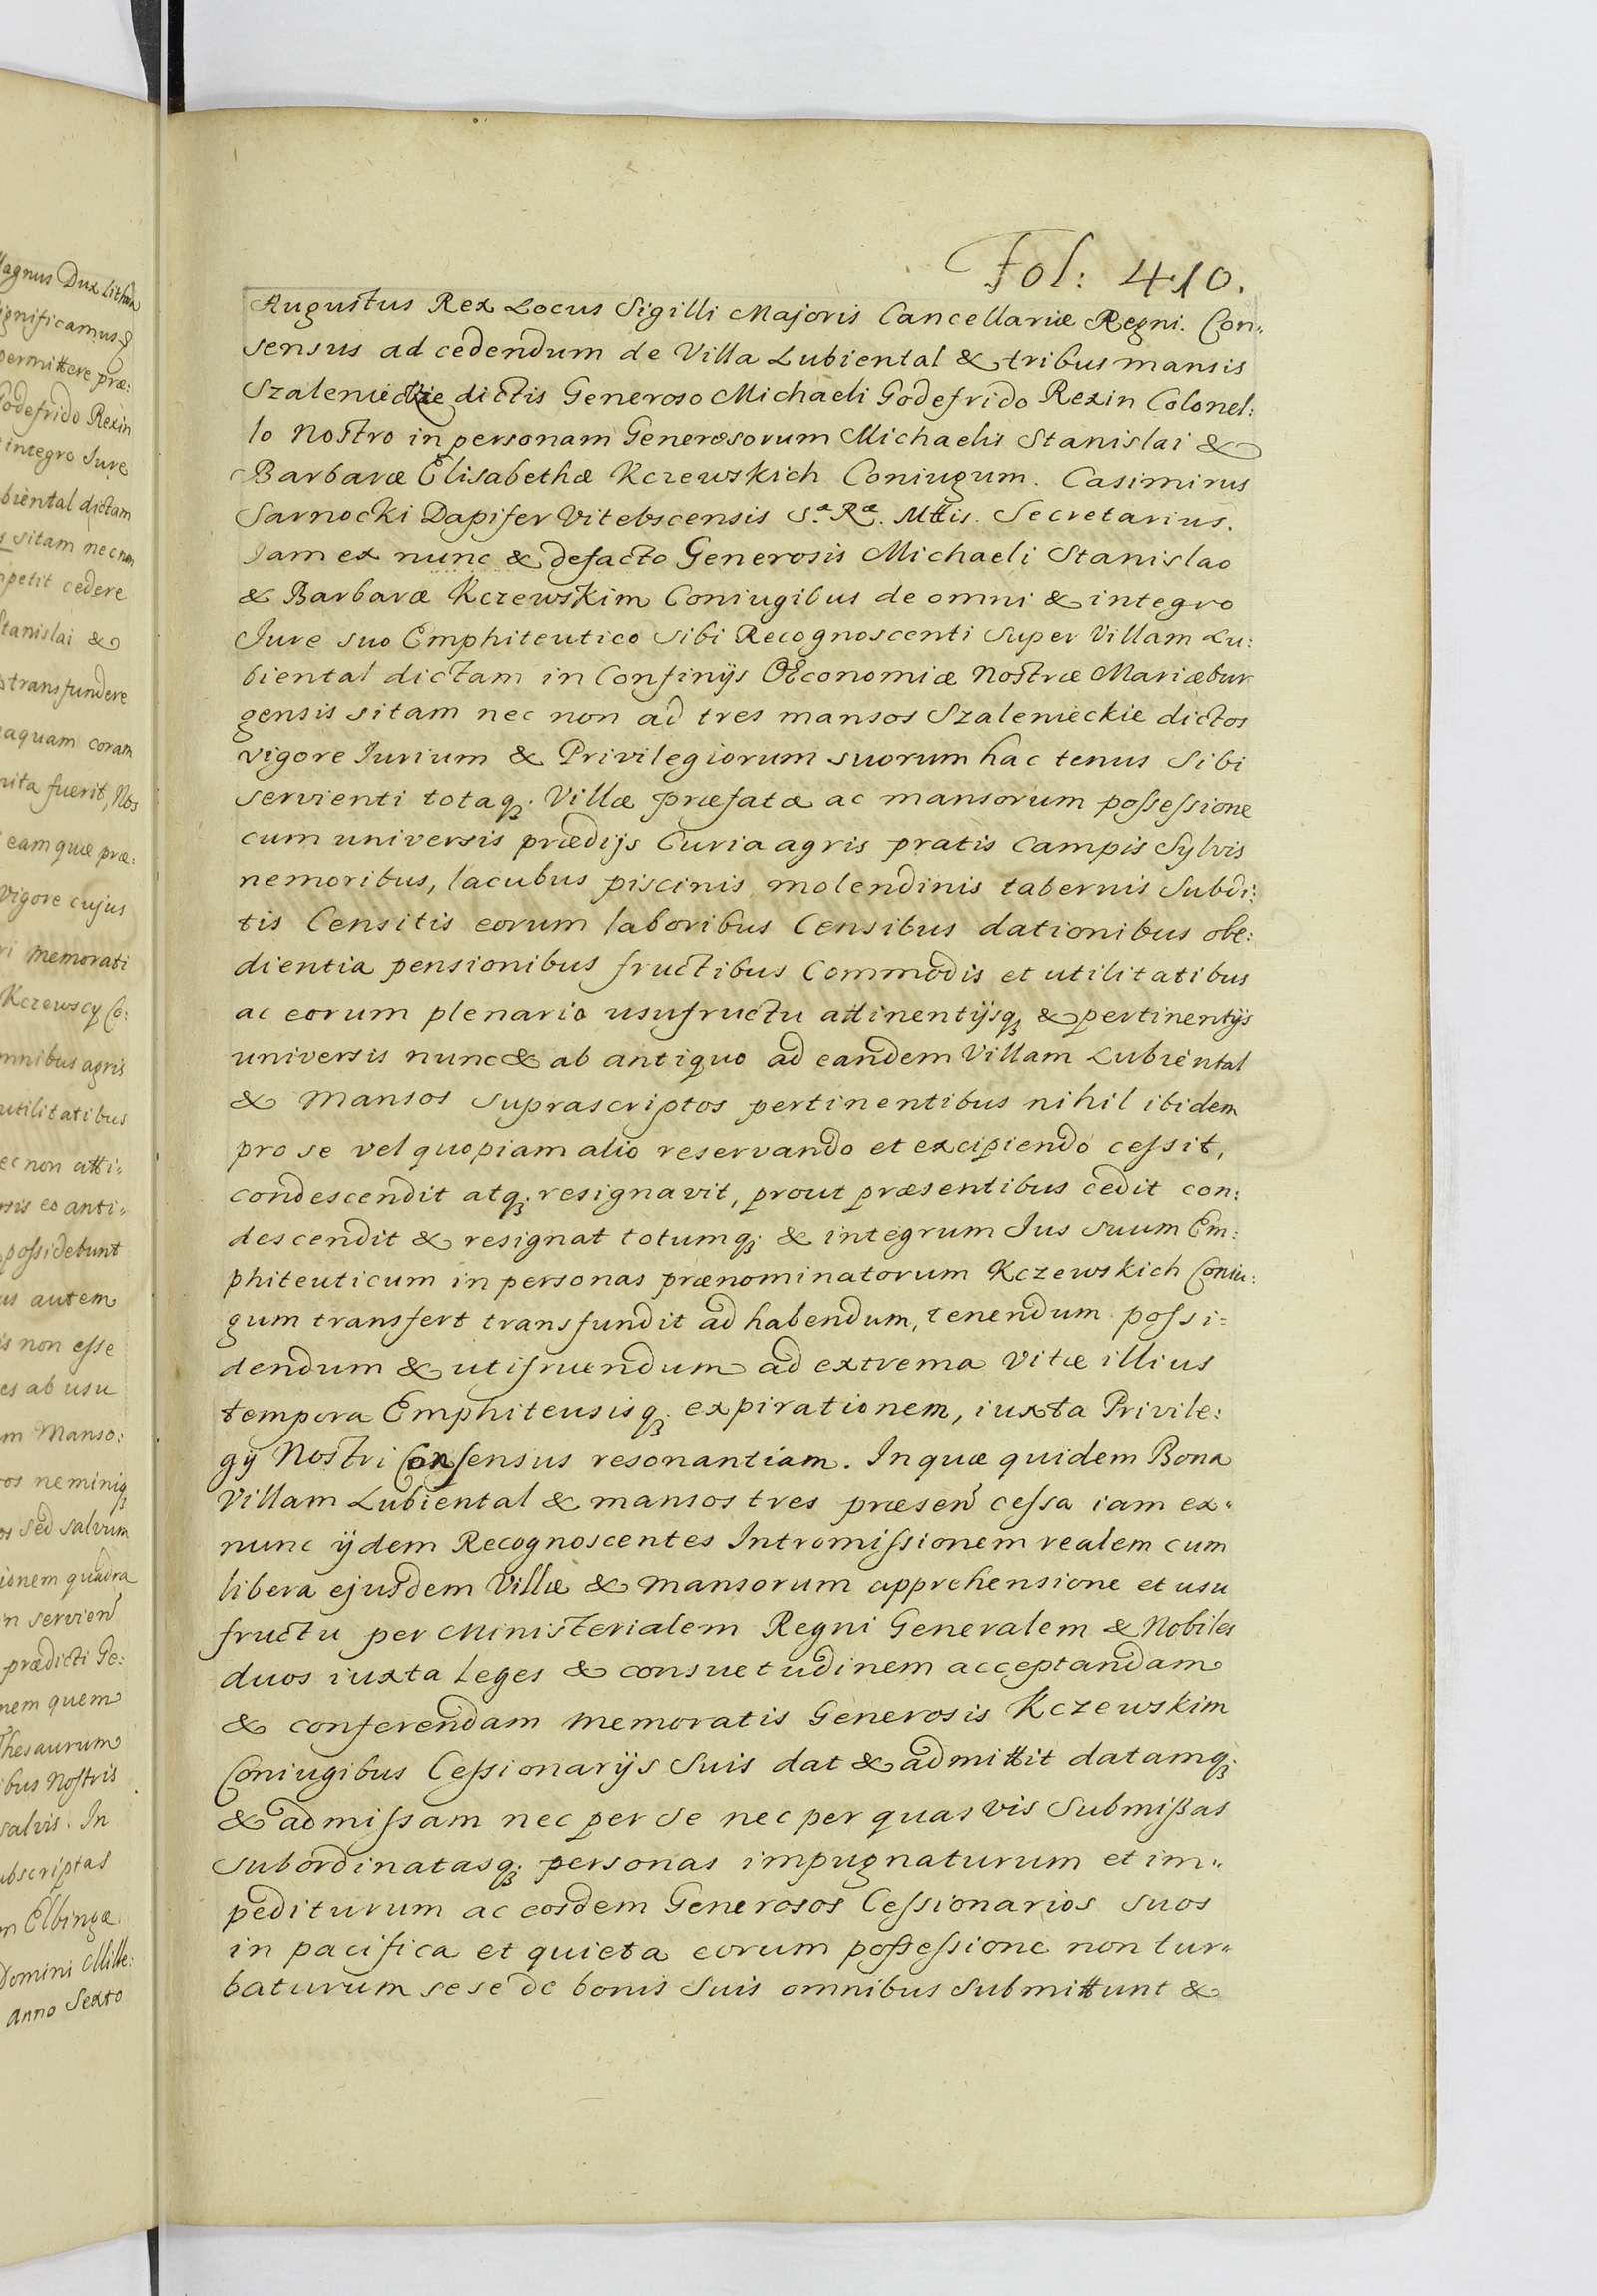 Fol: 410.
Augustus Rex Locus Sigilli Majoris Cancellariæ Regni. Con„
sensus ad cedendum de Villa Lubiental & tribus mansis
Szalenieckie dictis Generoso Michaeli Godefrido Rexin Colonel:
lo Nostro in personam Generosorum Michaelis Stanislai &
Barbaræ Elisabethæ Kczewskich Coniugum. Casimirus
Sarnocki Dapifer Vitebscensis S.æ R.æ Mttis. Secretarius.
Iam ex nunc & defacto Generosis Michaeli Stanislao
& Barbaræ Kczewskim Coniugibus de omni & integro
Jure suo Emphiteutico sibi Recognoscenti super Villam Lu:
biental dictam in Confinijs OEconomiæ Nostræ Mariæbur
gensis sitam nec non ad tres mansos Szalenieckie dictos
vigore Iurium & Privilegiorum suorum hac tenus sibi
servienti totaq;. Villæ præfatæ ac mansorum possessione
cum universis prædijs Curia agris pratis campis Sylvis
nemoribus, lacubus piscinis molendinis tabernis subdi:
tis Censitis eorum laboribus Censibus dationibus obe:
dientia pensionibus fructibus Commodis et utilitatibus
ac eorum plenario usufructu attinentijsq; & pertinentijs
universis nunc & ab antiquo ad eandem Villam Lubiental
& Mansos suprascriptos pertinentibus nihil ibidem
pro se vel quopiam alio reservando et excipiendo cessit,
condescendit atq;. resignavit, prout præsentibus cedit con:
descendit & resignat totumq;. & integrum Jus suum Em:
phiteuticum in personas prænominatorum Kczewskich Coniu:
gum transfert transfundit ad habendum, tenendum possi=
dendum & utifruendum ad extrema Vitæ illius
tempora Emphiteusisq;. expirationem, iuxta Privile:
gij Nostri Consensus resonantiam. In quæ quidem Bona
Villam Lubiental & mansos tres præsen cessa iam ex„
nunc ijdem Recognoscentes Intromissionem realem cum
libera ejusdem Villæ & mansorum apprehensione et usu
fructu per Ministerialem Regni Generalem & Nobiles
duos iuxta Leges & consuetudinem acceptandam
& conferendam memoratis Generosis Kczewskim
Coniugibus Cessionarijs suis dat & admittit datamq;.
& admissam nec per se nec per quasvis submissas
subordinatasq;. personas impugnaturum et im„
pediturum ac eosdem Generosos Cessionarios suos
in pacifica et quieta eorum possessione non tur„
baturum sese de bonis suis omnibus submittunt &